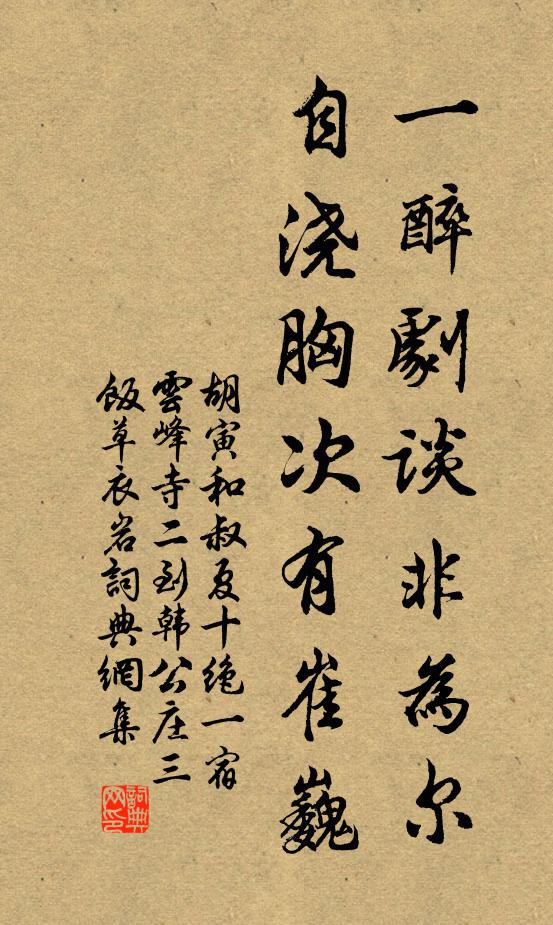 一醉劇谈非為尔
自浇胸次有崔巍
胡寅和叔夏十绝一宿
雲峰寺二到韩公庄三
飯草衣岩詞典網集
詞典网印